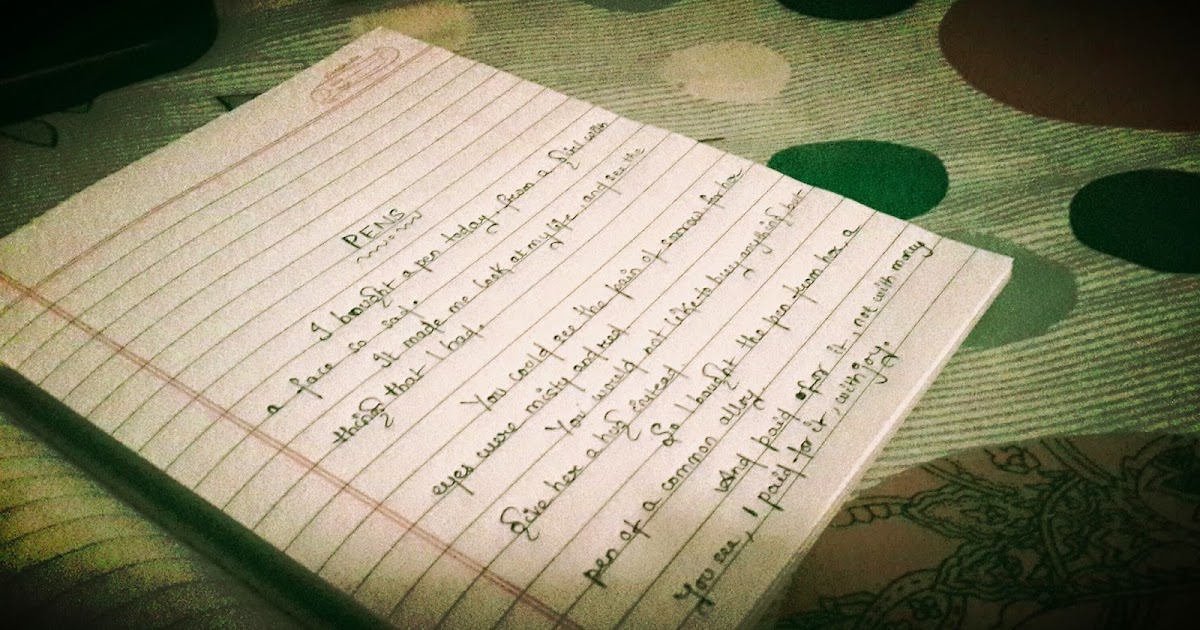 PENS
I bought a pen today from a girl with
a face so sad.
It made me look at my life and see the
things that I had.
You could see the pain of sorrow for her
eyes were misty and red
You would not like to buy anything, but
Give her a hug instead
So I bought the pen from her, a
pen of a common alloy
And paid for it, not with money
You see, I paid for it, with joy.